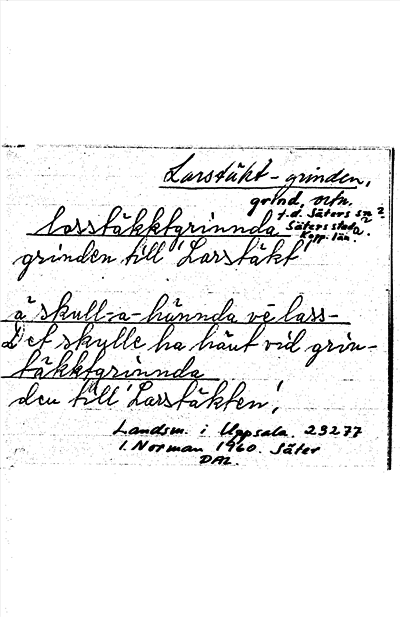 Larstäkt-grinden,
grind, ortn.
f.d. Säters sn
lasstäkktgrinnda Säters stad,
Kopp. län.
grinden till 'Larstäkt'
ä skull-a-hännda ve lass-
Det skulle ha hänt vid grin-
täkktgrinnda
den till 'Larstäkten'.
Landsm. i Uppsala. 23277
I. Norman 1960. Säter
DAL.